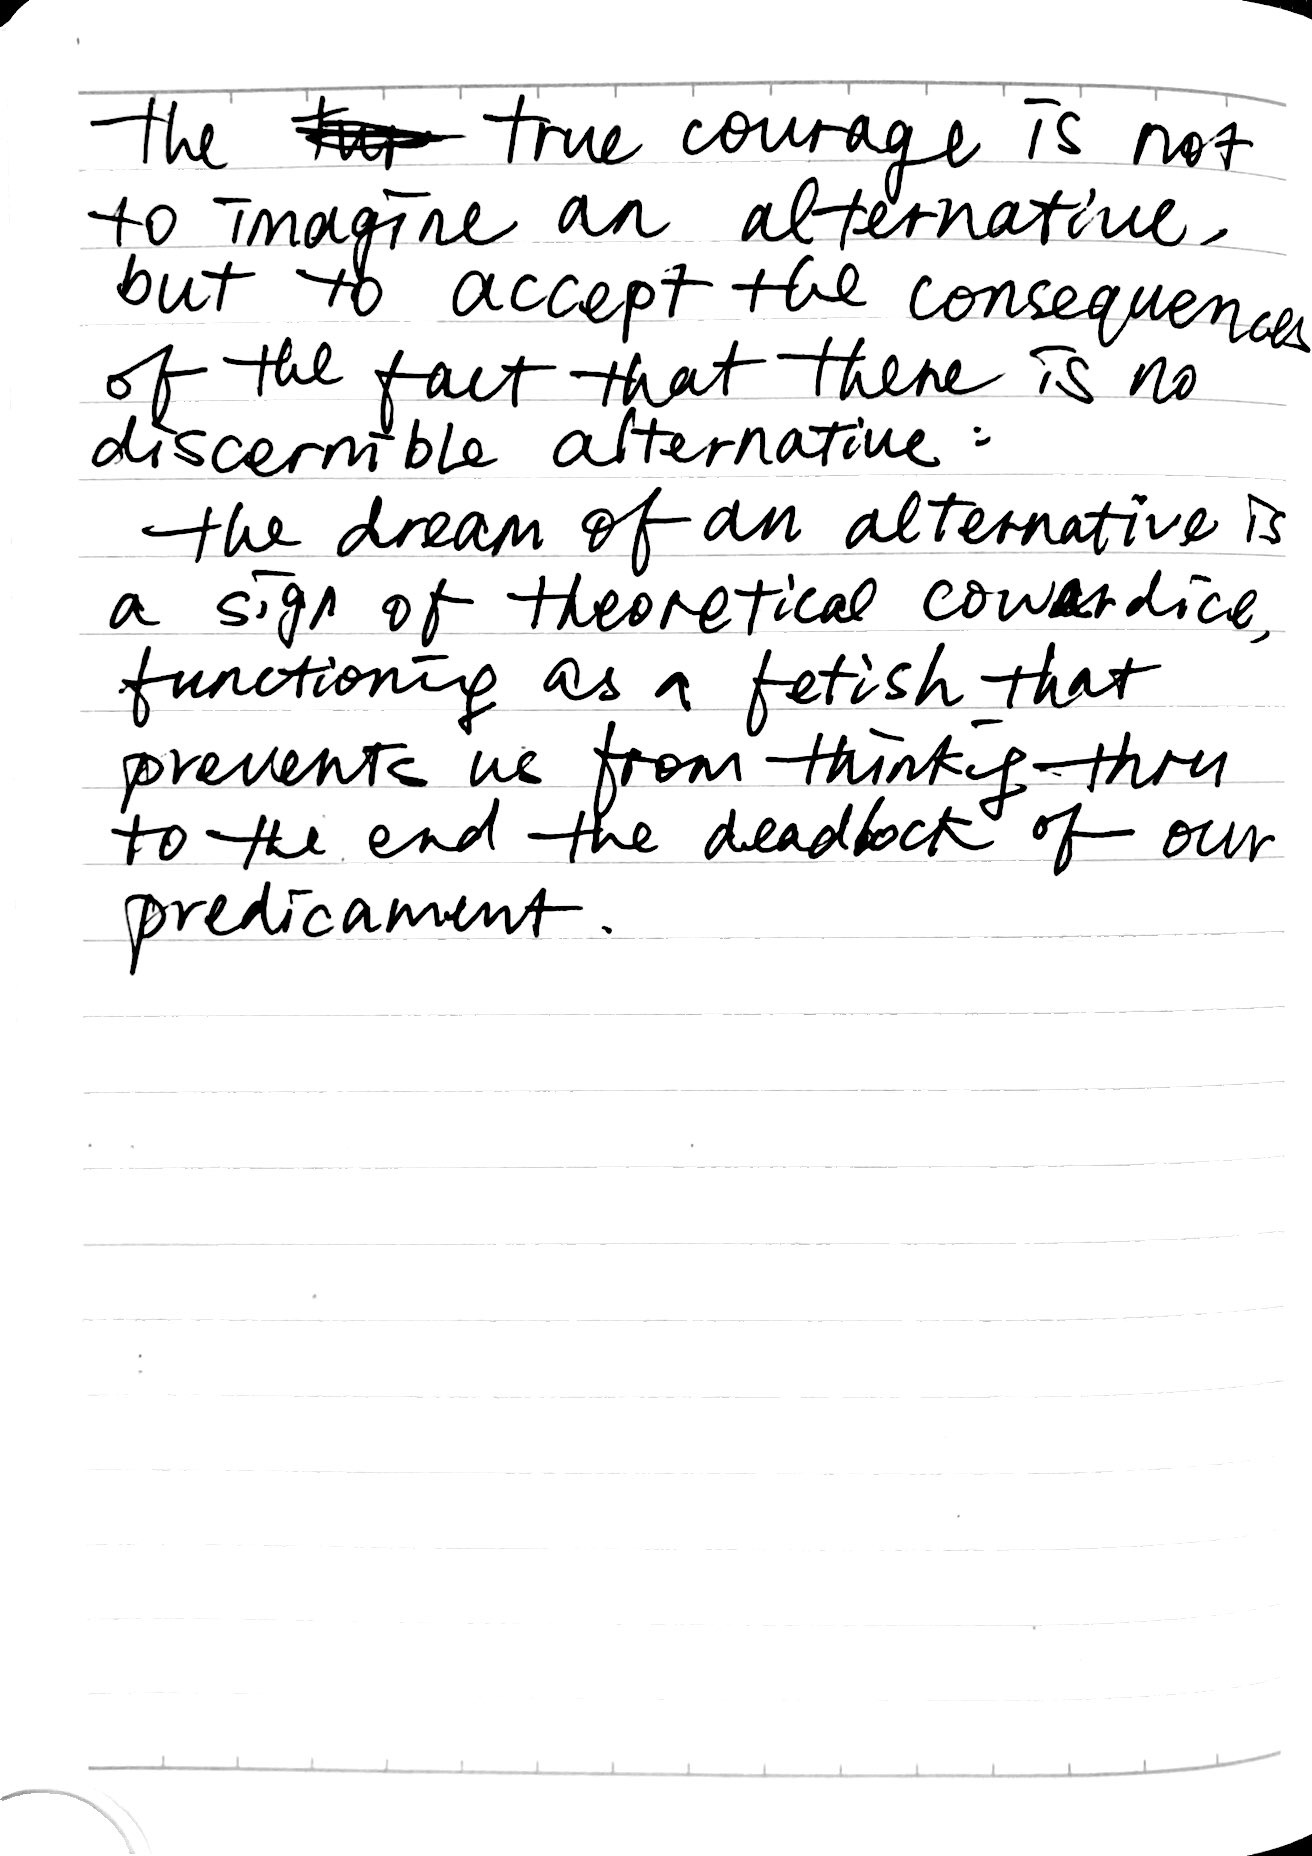 the true courage is not
to imagine an alternative,
but to accept the consequences
of the fact that there is no
discernible alternative:
the dream of an alternative is
a sign of theoretical cowardice,
functioning as a fetish that
prevents us from thinking thru
to the end the deadlock of our
predicament.